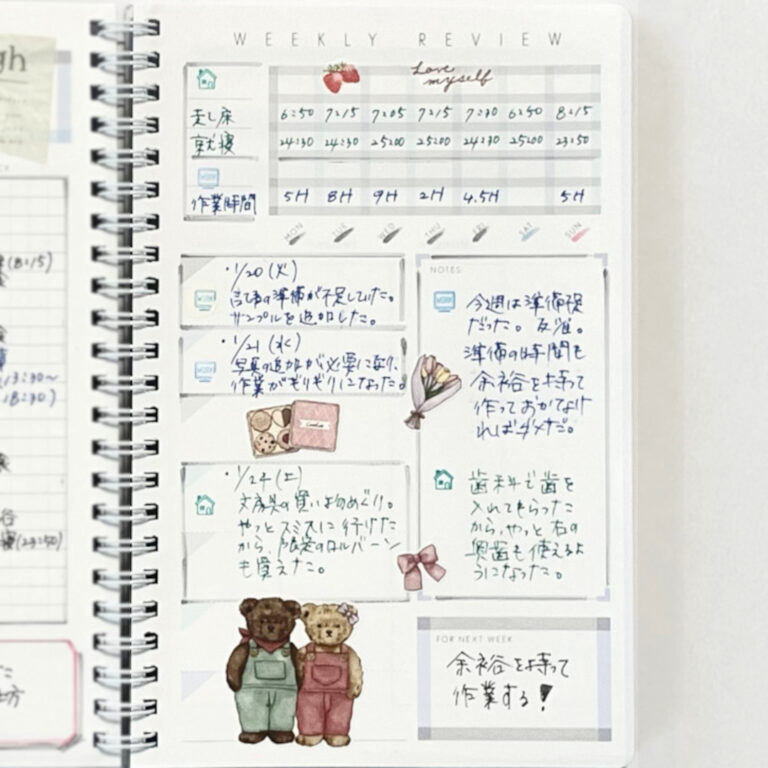 gh
WEEKLY REVIEW
Love
myself
走し床 6:50 7:15 7:05 7:15 7:30 6:50 8:15
就寝 24:30 24:30 25:00 25:00 24:30 25:00 23:50
WORK
作業時間 5H 8H 9H 2H 4.5H 5H
MON TUE WED THU FRI SAT SUN
・1/20(火)
WORK
の準備が不足していた。
サンプルを追加した。
・1/21(水)
WORK
写真の追加が必要になり、
作業がギリギリになった。
Cookies
・1/24(土)
文房具の買い物めぐり。
やっとスミスに行けた
から、限定のロルバーン
も買えた。
NOTES
WORK
今週は準備不足
だった。反省。
準備の時間も
余裕を持って
作っておかなけ
ればダメだ。
歯科で歯を
入れてもらった
から、やっと右の
奥歯も使えるよ
うになった。
FOR NEXT WEEK
余裕を持って
作業する!
(8:15)
13:30~
18:30)
(23:50)